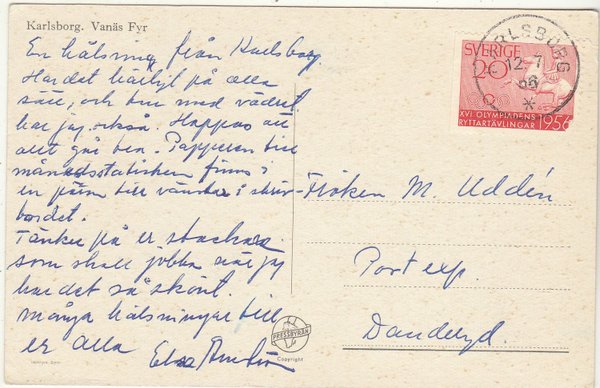 Karlsborg. Vanäs Fyr
En hälsning från Karlsborg.
Har det härligt på alla
sätt, och tur med vädret
har jag också. Hoppas att
allt går bra. Papperen till
månadsstatistiken finns i
en pärm till vänster i skriv-
bordet.
Tänker på er stackare
som skall jobba när jag
har det så skönt.
Många hälsningar till
er alla
Elsa
KARLSBORG
12.7
56
SVERIGE
20
XVI. OLYMPIADENS
RYTTARTÄVLINGAR 1956
Fröken M. Uddén
Portexp.
Danderyd.
PRESSBYRÅN
Copyright